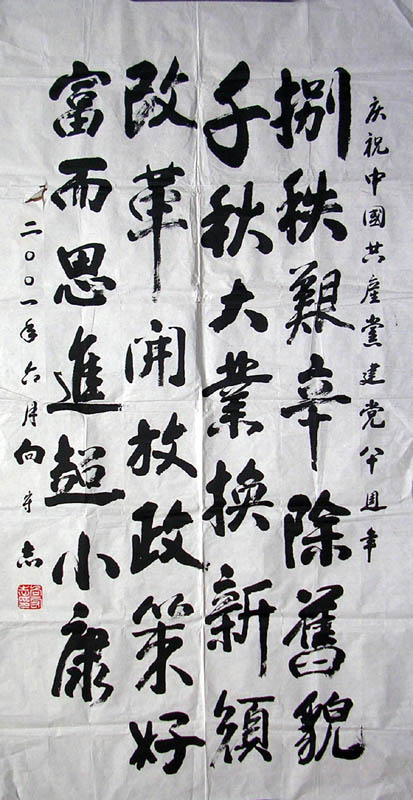 庆祝中國共產黨建党八十周年
捌秩艱辛除舊貌
千秋大業換新顔
改革開放政策好
富而思進超小康
二〇〇一年六月向守志